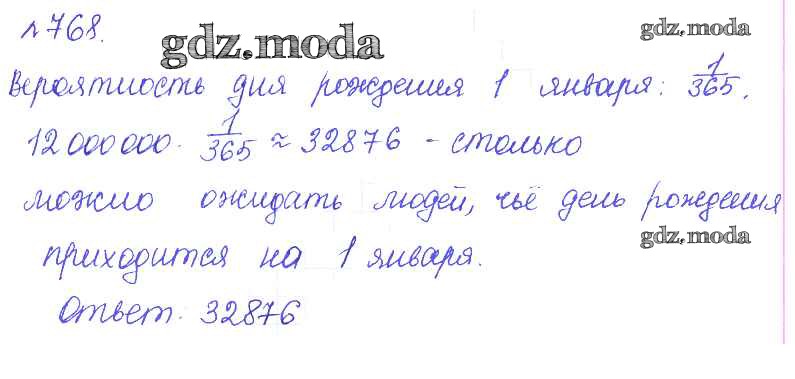 №768.
gdz.moda gdz.moda
Вероятность дня рождения 1 января: 1/365.
12 000 000 · 1/365 ≈ 32876 - столько
можно ожидать людей, чьё день рождения
gdz.moda
приходится на 1 января.
Ответ: 32876